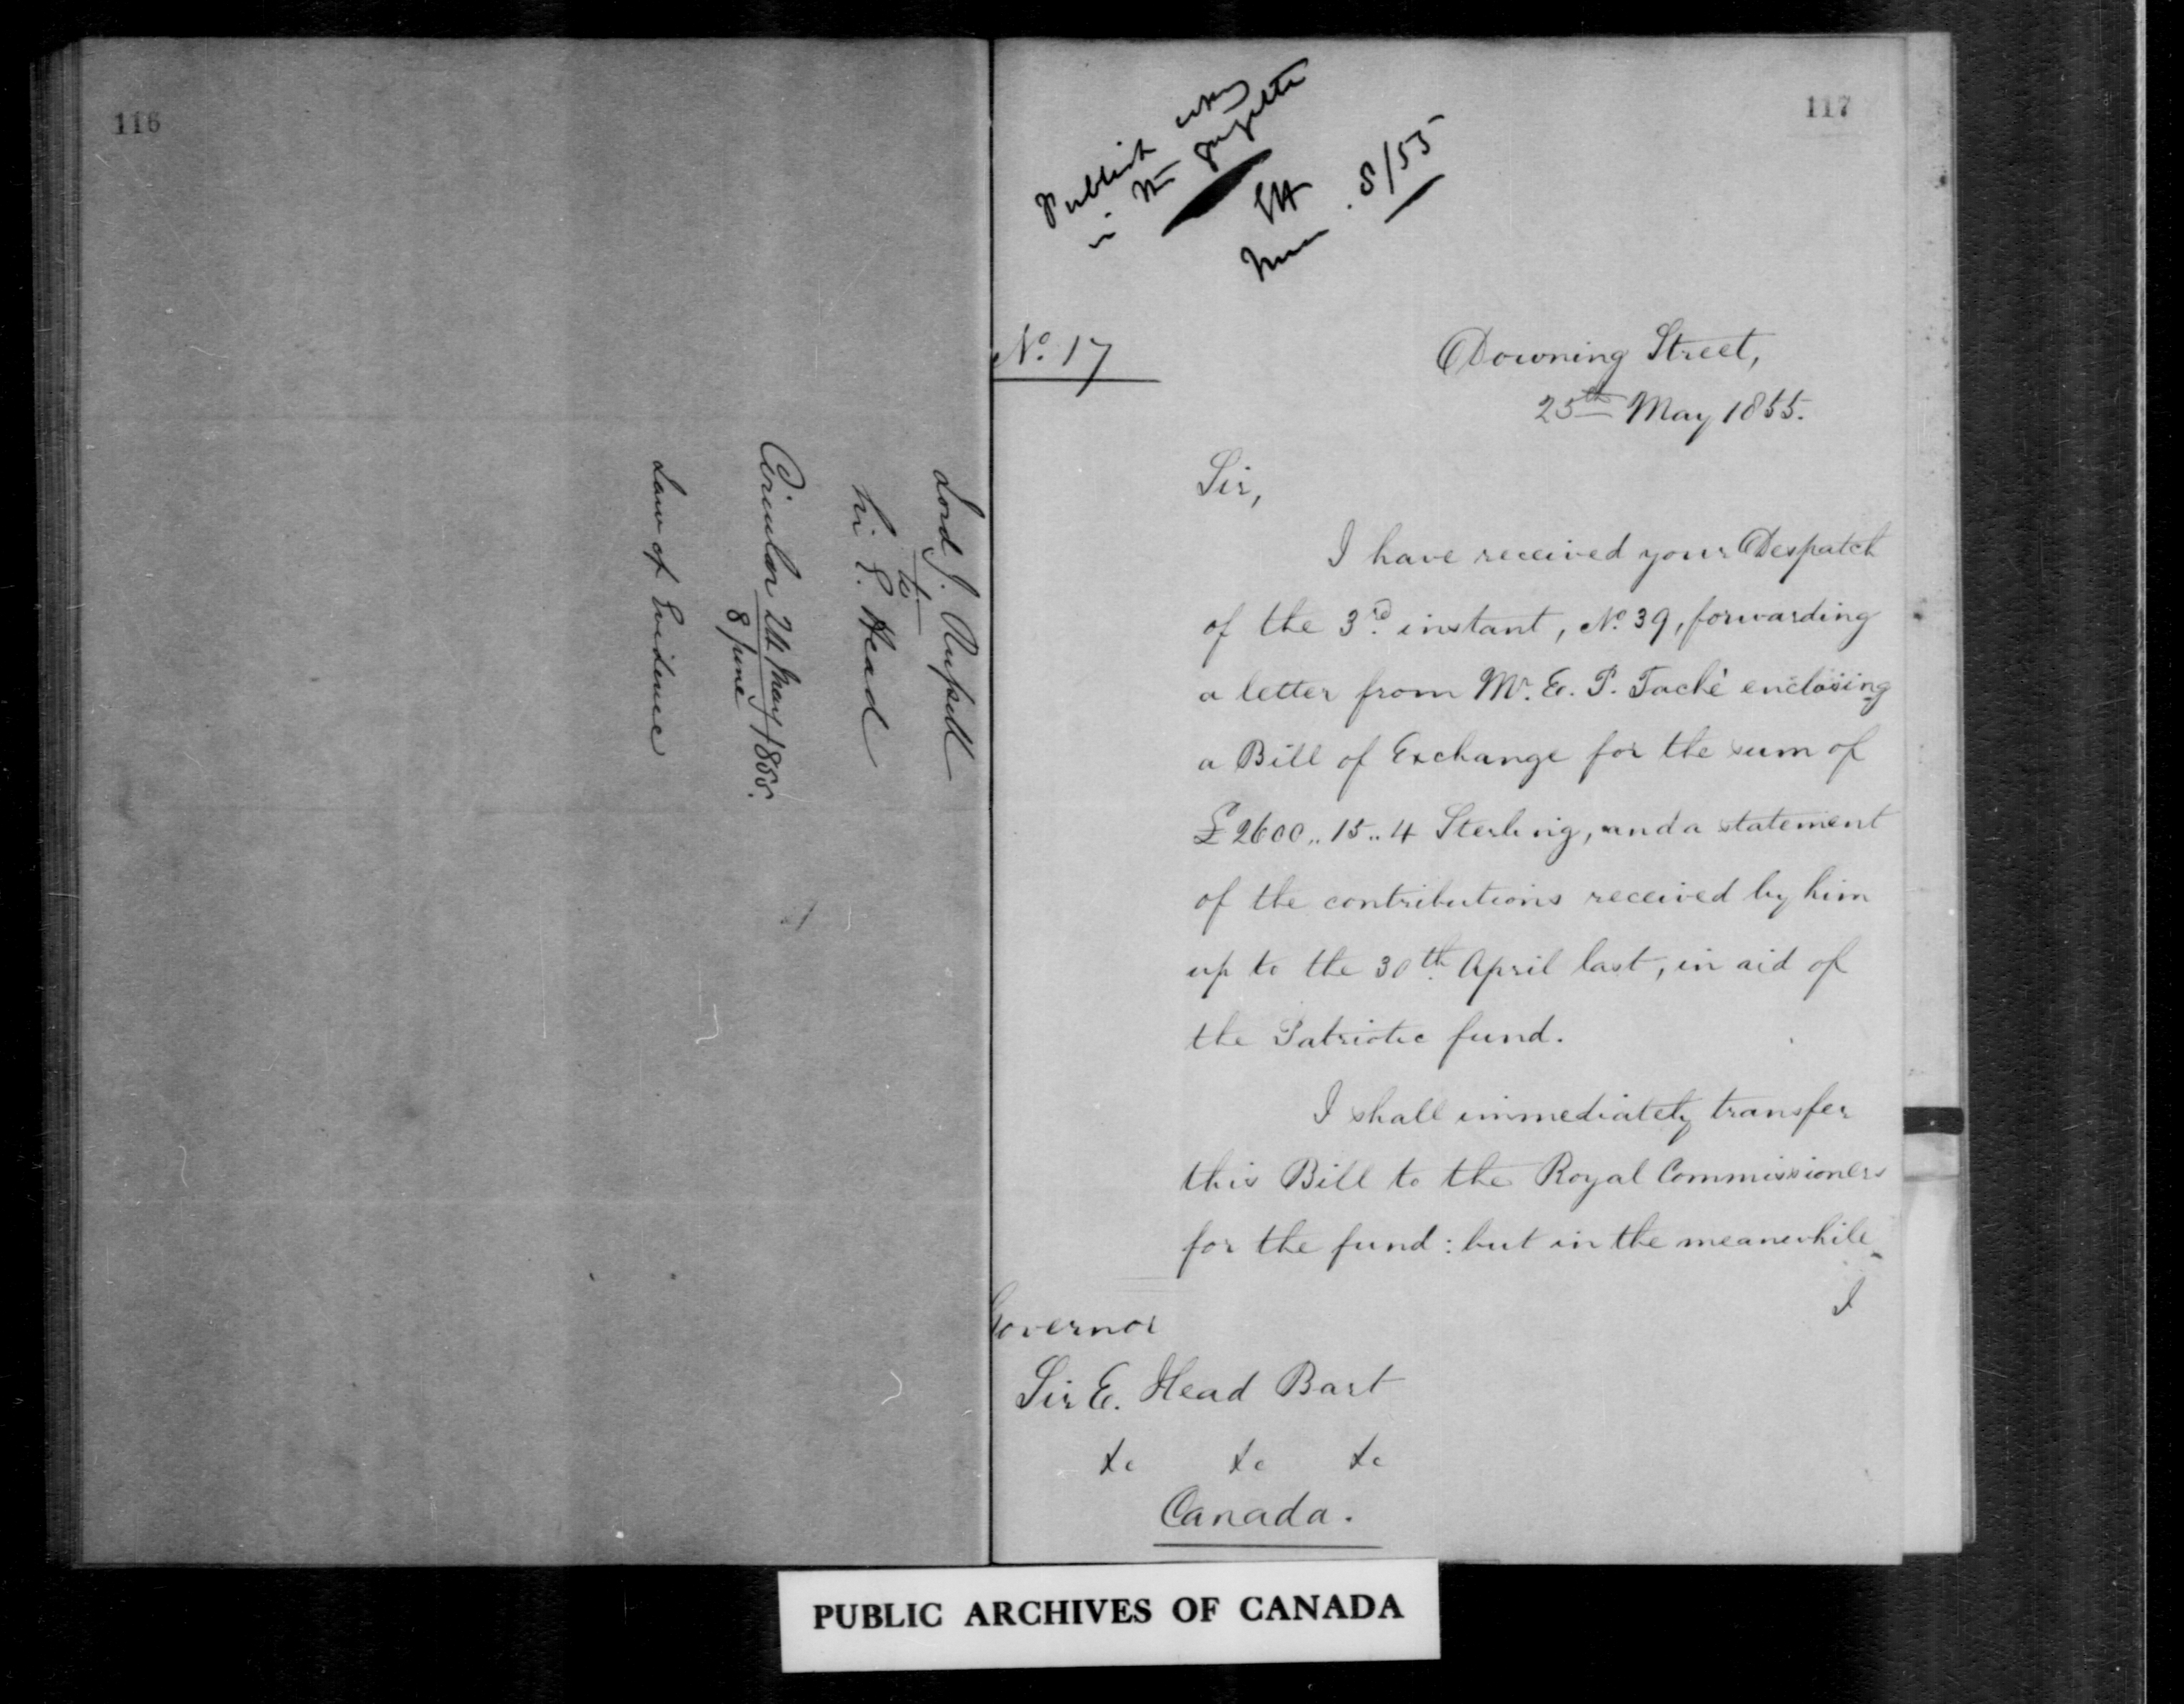 116
Lord J. Russell
to
Sir E. Head
Circular 24 May 1855.
8 June
Law of Evidence
117
Publish
in the gazette
EH
June 8/55
No. 17
Downing Street,
25th May 1855.
Sir,
I have received your Despatch
of the 3rd. instant, No. 39, forwarding
a letter from Mr. E. P. Taché enclosing
a Bill of Exchange for the sum of
£2600..15..4 Sterling, and a statement
of the contributions received by him
up to the 30th. April last, in aid of
the Patriotic fund.
I shall immediately transfer
this Bill to the Royal Commissioners
for the fund: but in the meanwhile
I
Governor
Sir E. Head Bart
&c &c &c
Canada.
PUBLIC ARCHIVES OF CANADA